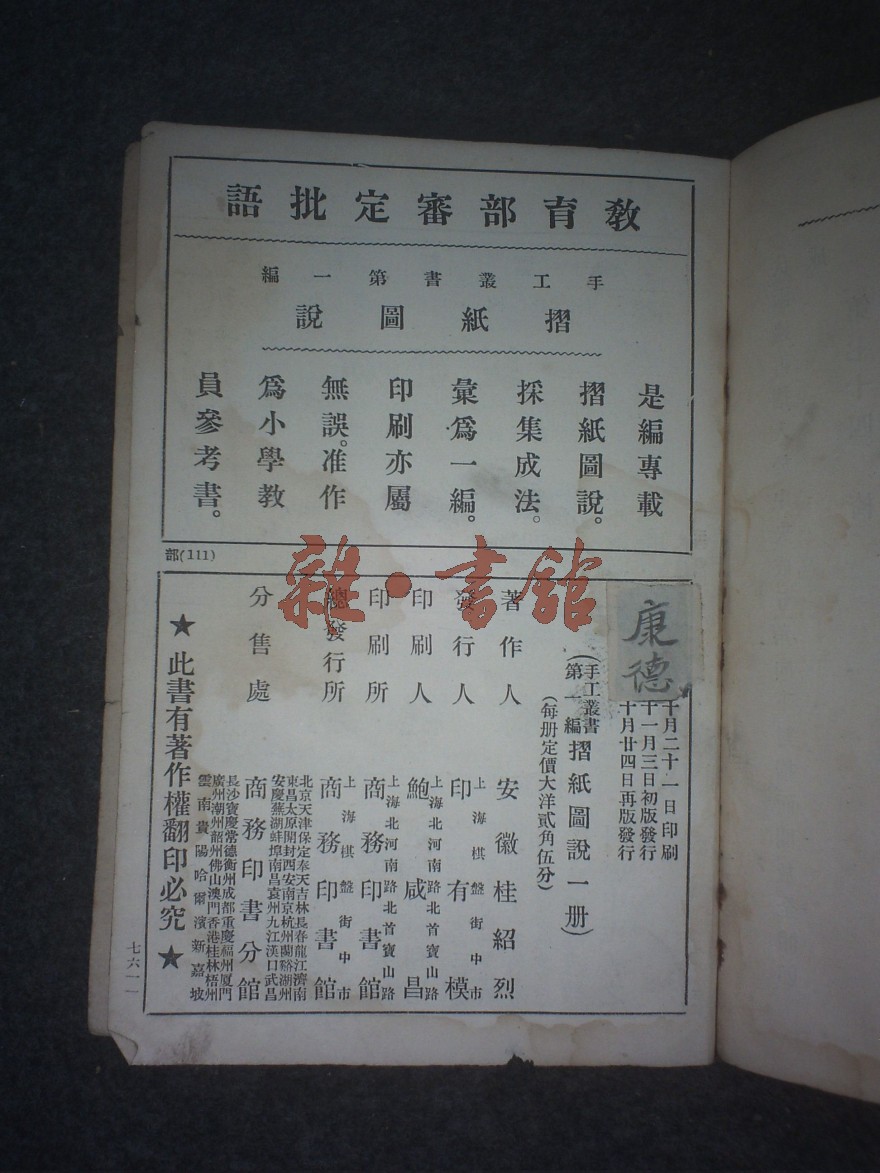 教育部審定批語
手工叢書第一編
摺紙圖說
是編專載
摺紙圖說。
採集成法。
彙為一編。
印刷亦屬
無誤。准作
為小學教
員參考書。
部(111)
雜·書館
康德
十月二十一日印刷
十一月三日初版發行
十月廿四日再版發行
(手工叢書第一編摺紙圖說一册)
(每册定價大洋貳角伍分)
著作人 安徽桂紹烈
發行人 印有模
上海棋盤街中市
印刷人 鮑咸昌
上海北河南路北首寶山路
印刷所 商務印書館
上海北河南路北首寶山路
總發行所 商務印書館
上海棋盤街中市
分售處 商務印書分館
北京天津保定奉天吉林長春龍江濟南
東昌太原開封西安南京杭州蘭谿湖州
安慶蕪湖蚌埠南昌袁州九江漢口武昌
長沙寶慶常德衡州成都重慶福州厦門
廣州潮州韶州佛山澳門香港桂林梧州
雲南貴陽哈爾濱新嘉坡
★此書有著作權翻印必究★
七六一一